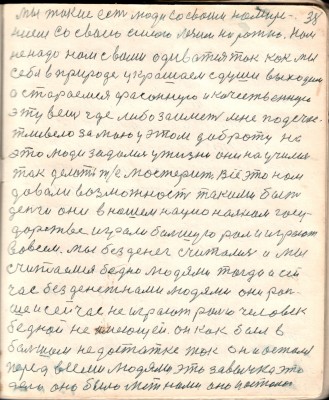 38
Мы такие ест люди со своим
нием со своы силою
ненадо нам с вами одиватия так как мы
себя в природе украшаем с души выходит
а стараемся фасонную и качественную
эту вещ где либо заимет мне подсчас
тливело за мною у этом доброту на
это люди задали у жизно они научили
так делать т/е мастерит всё это нам
давали возможност такими быт
денги они в нашем национал ном госу-
дарстве играли балшую рол и играют
вовсем. мы без денег считалис и мы
считаемся бедно людями тогда а сей
час без денежнами людями они ран-
ше и сей час не играют ролю человек
бедной не имеющей. он как был в
балшом недостатке так он и остался
перед всеми людями это завалка это
дело оно было мет нами оно и осталос